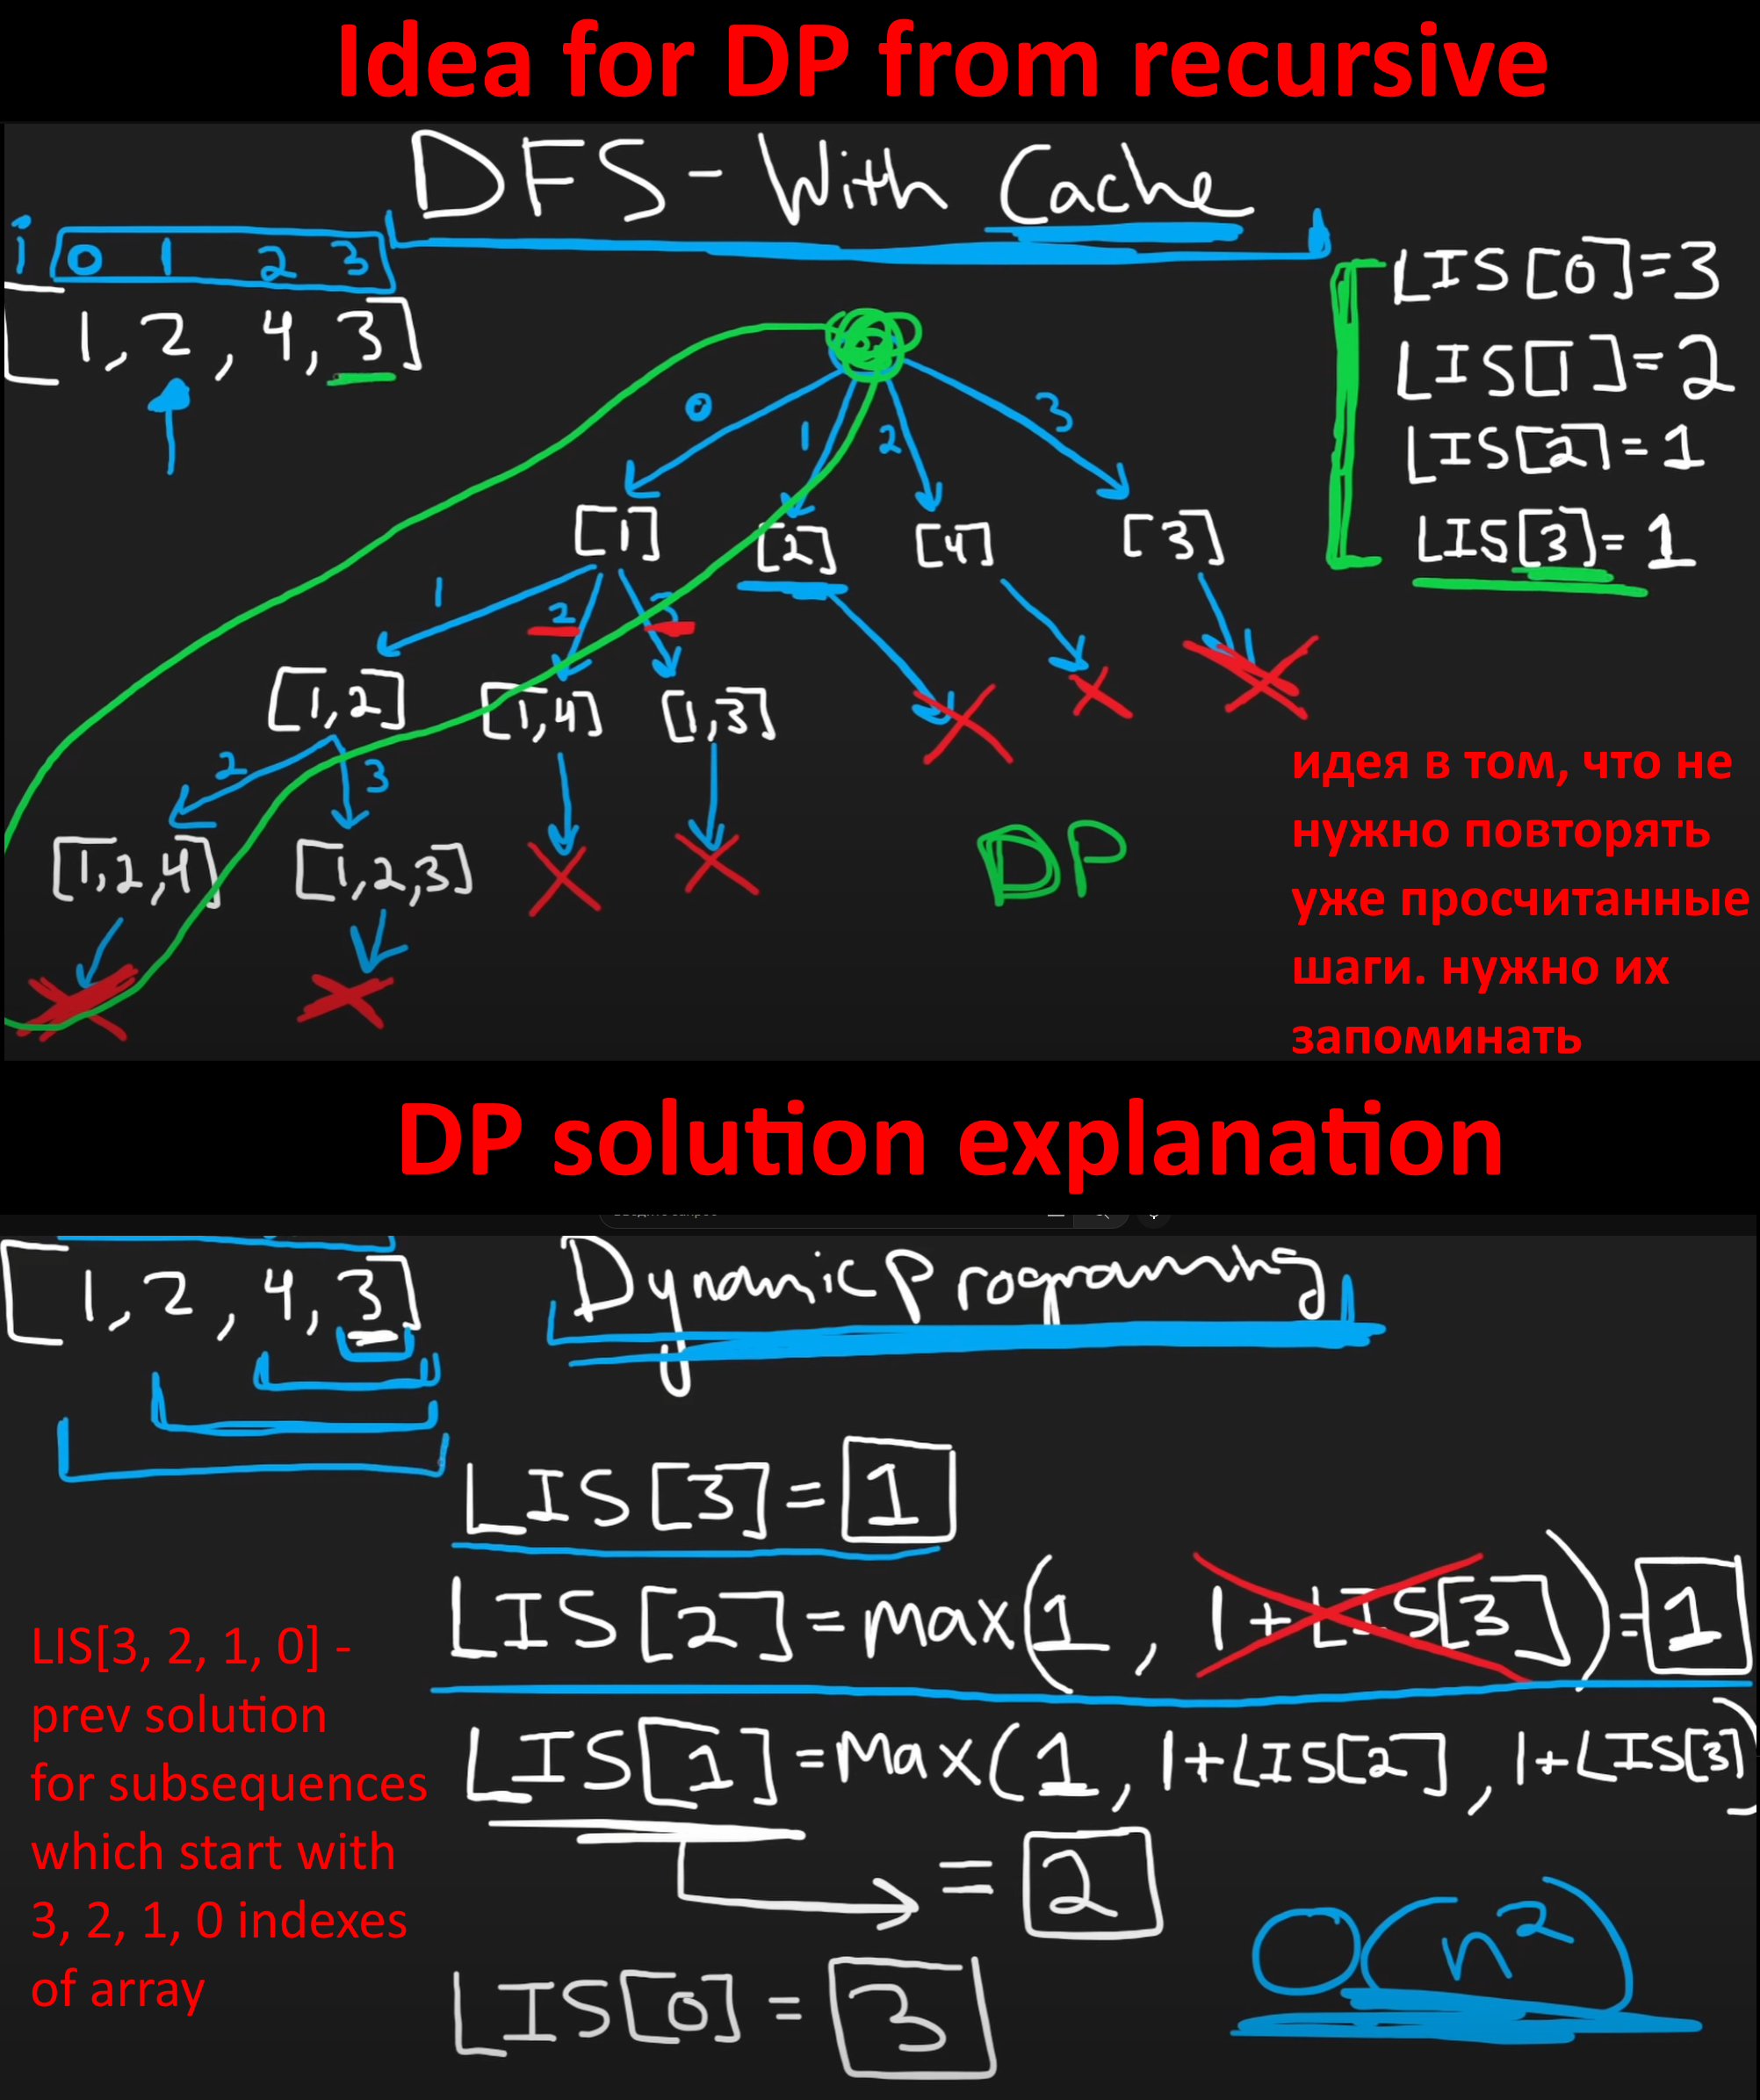 Idea for DP from recursive
DFS - With Cache
i 0 1 2 3
[1, 2, 4, 3]
LIS[0]=3
LIS[1]=2
LIS[2]=1
LIS[3]=1
0 1 2 3
[1] [2] [4] [3]
1 2 3
[1,2] [1,4] [1,3]
2 3
[1,2,4] [1,2,3]
DP
идея в том, что не
нужно повторять
уже просчитанные
шаги. нужно их
запоминать
DP solution explanation
[1, 2, 4, 3]
Dynamic Programming
LIS[3]=1
LIS[2]=max(1, 1+LIS[3])=1
LIS[1]=Max(1, 1+LIS[2], 1+LIS[3])
= 2
LIS[0]=3
LIS[3, 2, 1, 0] -
prev solution
for subsequences
which start with
3, 2, 1, 0 indexes
of array
O(n²)